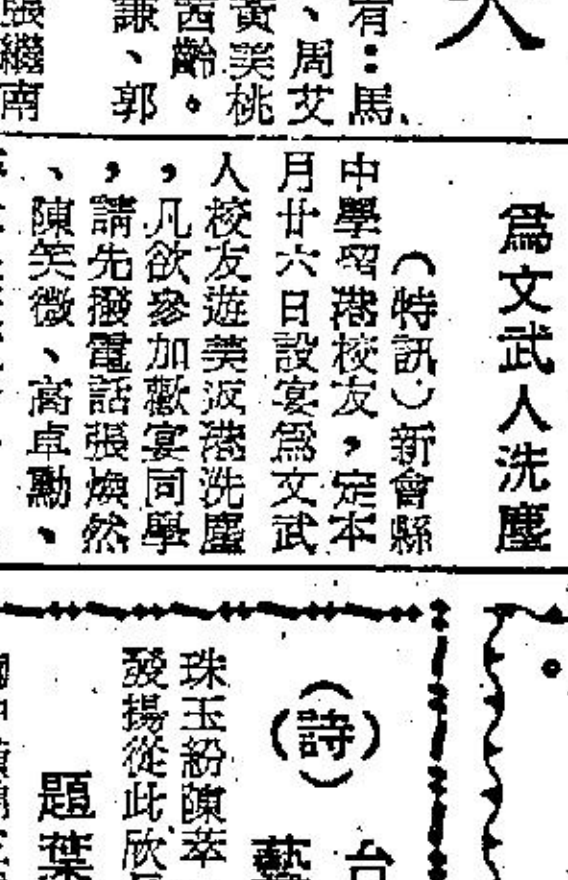 有：馬
、周艾
黃美桃
茜齡。
謙、郭
張繼南
為文武人洗塵
（特訊）新會縣
中學留港校友，定本
月廿六日設宴為文武
人校友遊美返港洗塵
，凡欲參加歡宴同學
，請先撥電話張煥然
、陳笑微、高卓勳、
（詩）
珠玉紛陳萃
發揚從此欣
題葉